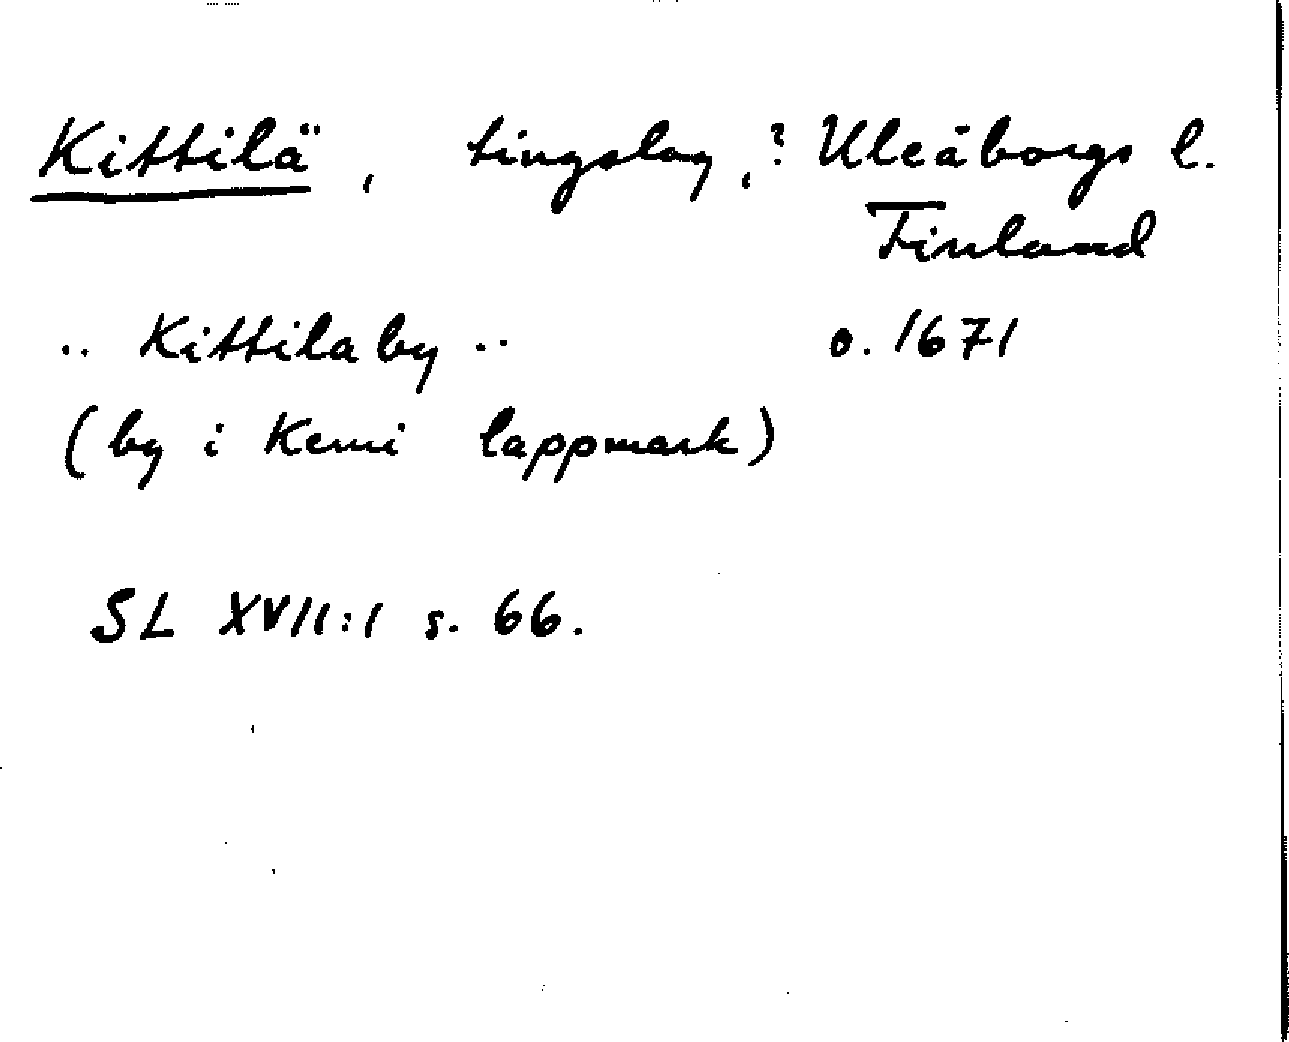 Kittilä, tingslag, ? Uleåborgs l.
Finland
.. Kittilaby .. o. 1671
(by i Kemi lappmark)
SL XVII:1 s. 66.